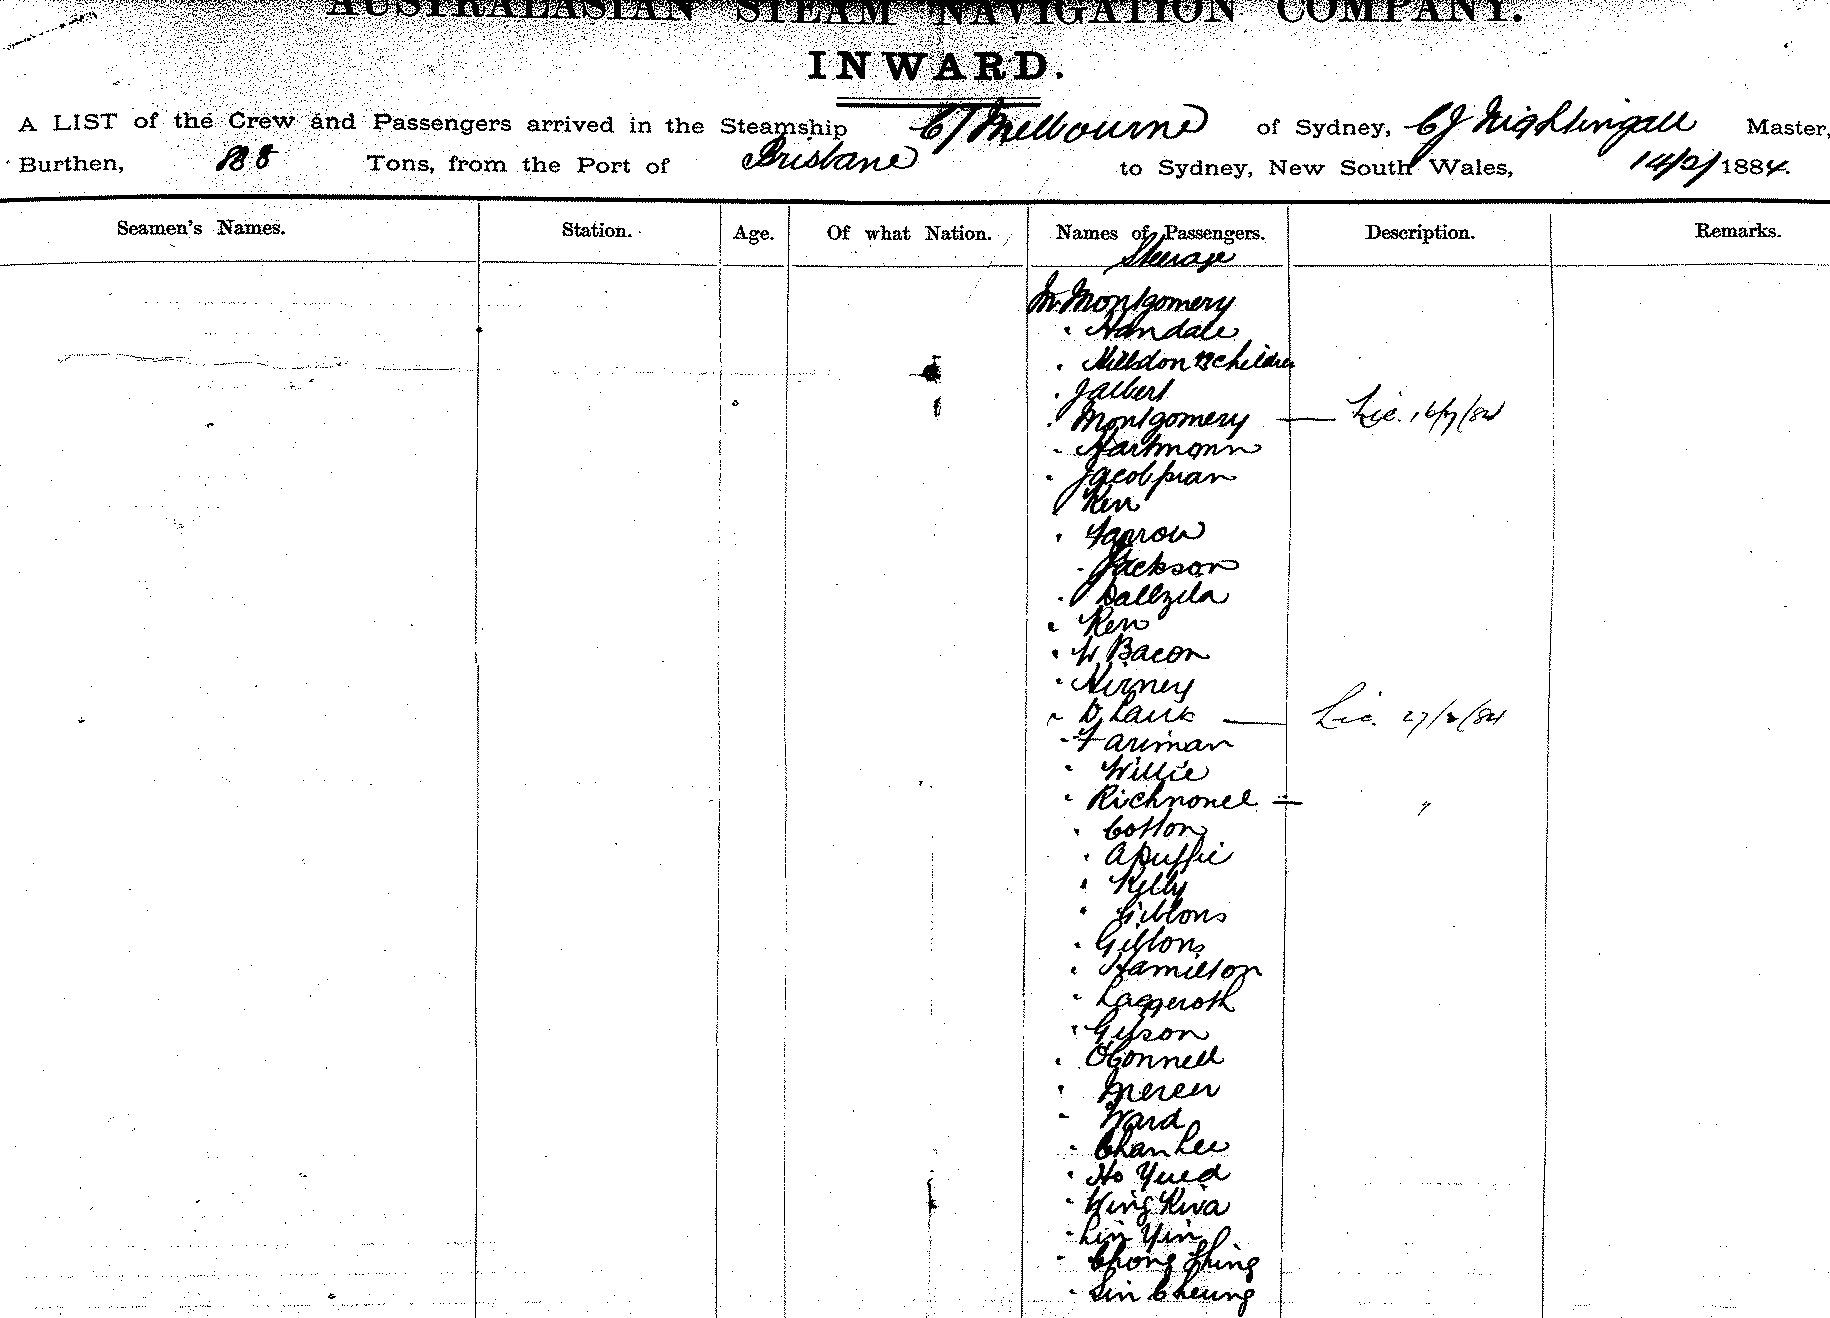 AUSTRALASIAN STEAM NAVIGATION COMPANY.
INWARD.
A LIST of the Crew and Passengers arrived in the Steamship C/ Melbourne of Sydney, CJ Nightingall Master,
Burthen, 188 Tons, from the Port of Brisbane to Sydney, New South Wales, 14/2/1884.
Seamen's Names. Station. Age. Of what Nation. Names of Passengers. Description. Remarks.
Steerage
Mr Montgomery
" Handale
" children
" J Albert
" Montgomery — Lic. 16/7/84
" Hartmann
"
Kerr
" Farrow
" Jackson
"
" Kerr
" W Bacon
" Kirney
" D — Lic. 27/2/84
" Fariman
" Willie
" —  "
" Cotton
" A Duffie
" Kelly
" Gibbons
" Gibbons
" Hamilton
" Laggeroth
" Gibson
" O'Connell
" Mercer
" Ward
" Chan Lee
" Ho Yued
" King Kwa
" Lin Yin
" Chong Shing
" Sin Cheung